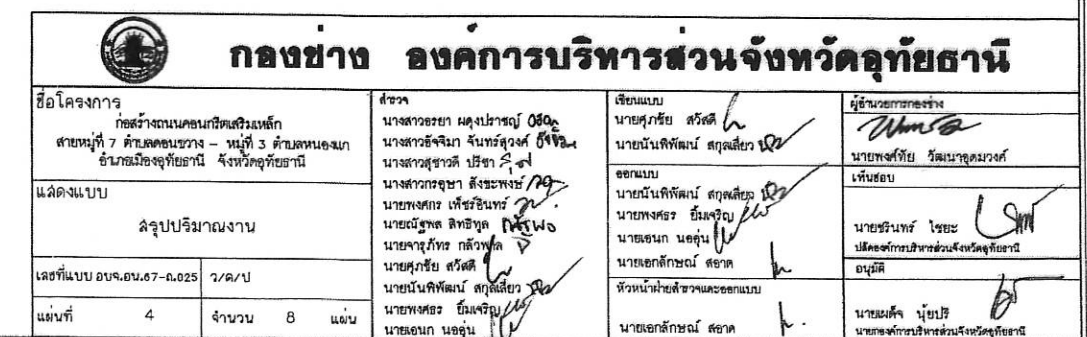 กองช่าง องค์การบริหารส่วนจังหวัดอุทัยธานี
ชื่อโครงการ
ก่อสร้างถนนคอนกรีตเสริมเหล็ก
สายหมู่ที่ 7 ตำบลดอนขวาง - หมู่ที่ 3 ตำบลหนองแก
อำเภอเมืองอุทัยธานี จังหวัดอุทัยธานี
แสดงแบบ
สรุปปริมาณงาน
เลขที่แบบ อบจ.อน.67-ถ.025 ว/ด/ป
แผ่นที่ 4 จำนวน 8 แผ่น
สำรวจ
นางสาวอรยา ผดุงปราชญ์
นางสาวอัจจิมา จันทร์สุวงศ์
นางสาวสุชาวดี ปรีชา
นางสาวกรอุษา สังขะพงษ์
นายพงศกร เพ็ชร์อินทร์
นายณัฐพล สิทธิทูล
นายจารุภัทร กลัวพูล
นายศุภชัย สวัสดี
นายนันพิพัฒน์ สกุลเสี่ยว
นายพงศธร ยิ้มเจริญ
นายเอนก นออุ่น
เขียนแบบ
นายศุภชัย สวัสดี
นายนันพิพัฒน์ สกุลเสี่ยว
ออกแบบ
นายนันพิพัฒน์ สกุลเสี่ยว
นายพงศธร ยิ้มเจริญ
นายเอนก นออุ่น
นายเอกลักษณ์ สอาด
หัวหน้าฝ่ายสำรวจและออกแบบ
นายเอกลักษณ์ สอาด
ผู้อำนวยการกองช่าง
นายพงศ์ทัย วัฒนาอุดมวงศ์
เห็นชอบ
นายชรินทร์ ไชยะ
ปลัดองค์การบริหารส่วนจังหวัดอุทัยธานี
อนุมัติ
นายเผด็จ นุ้ยปรี
นายกองค์การบริหารส่วนจังหวัดอุทัยธานี